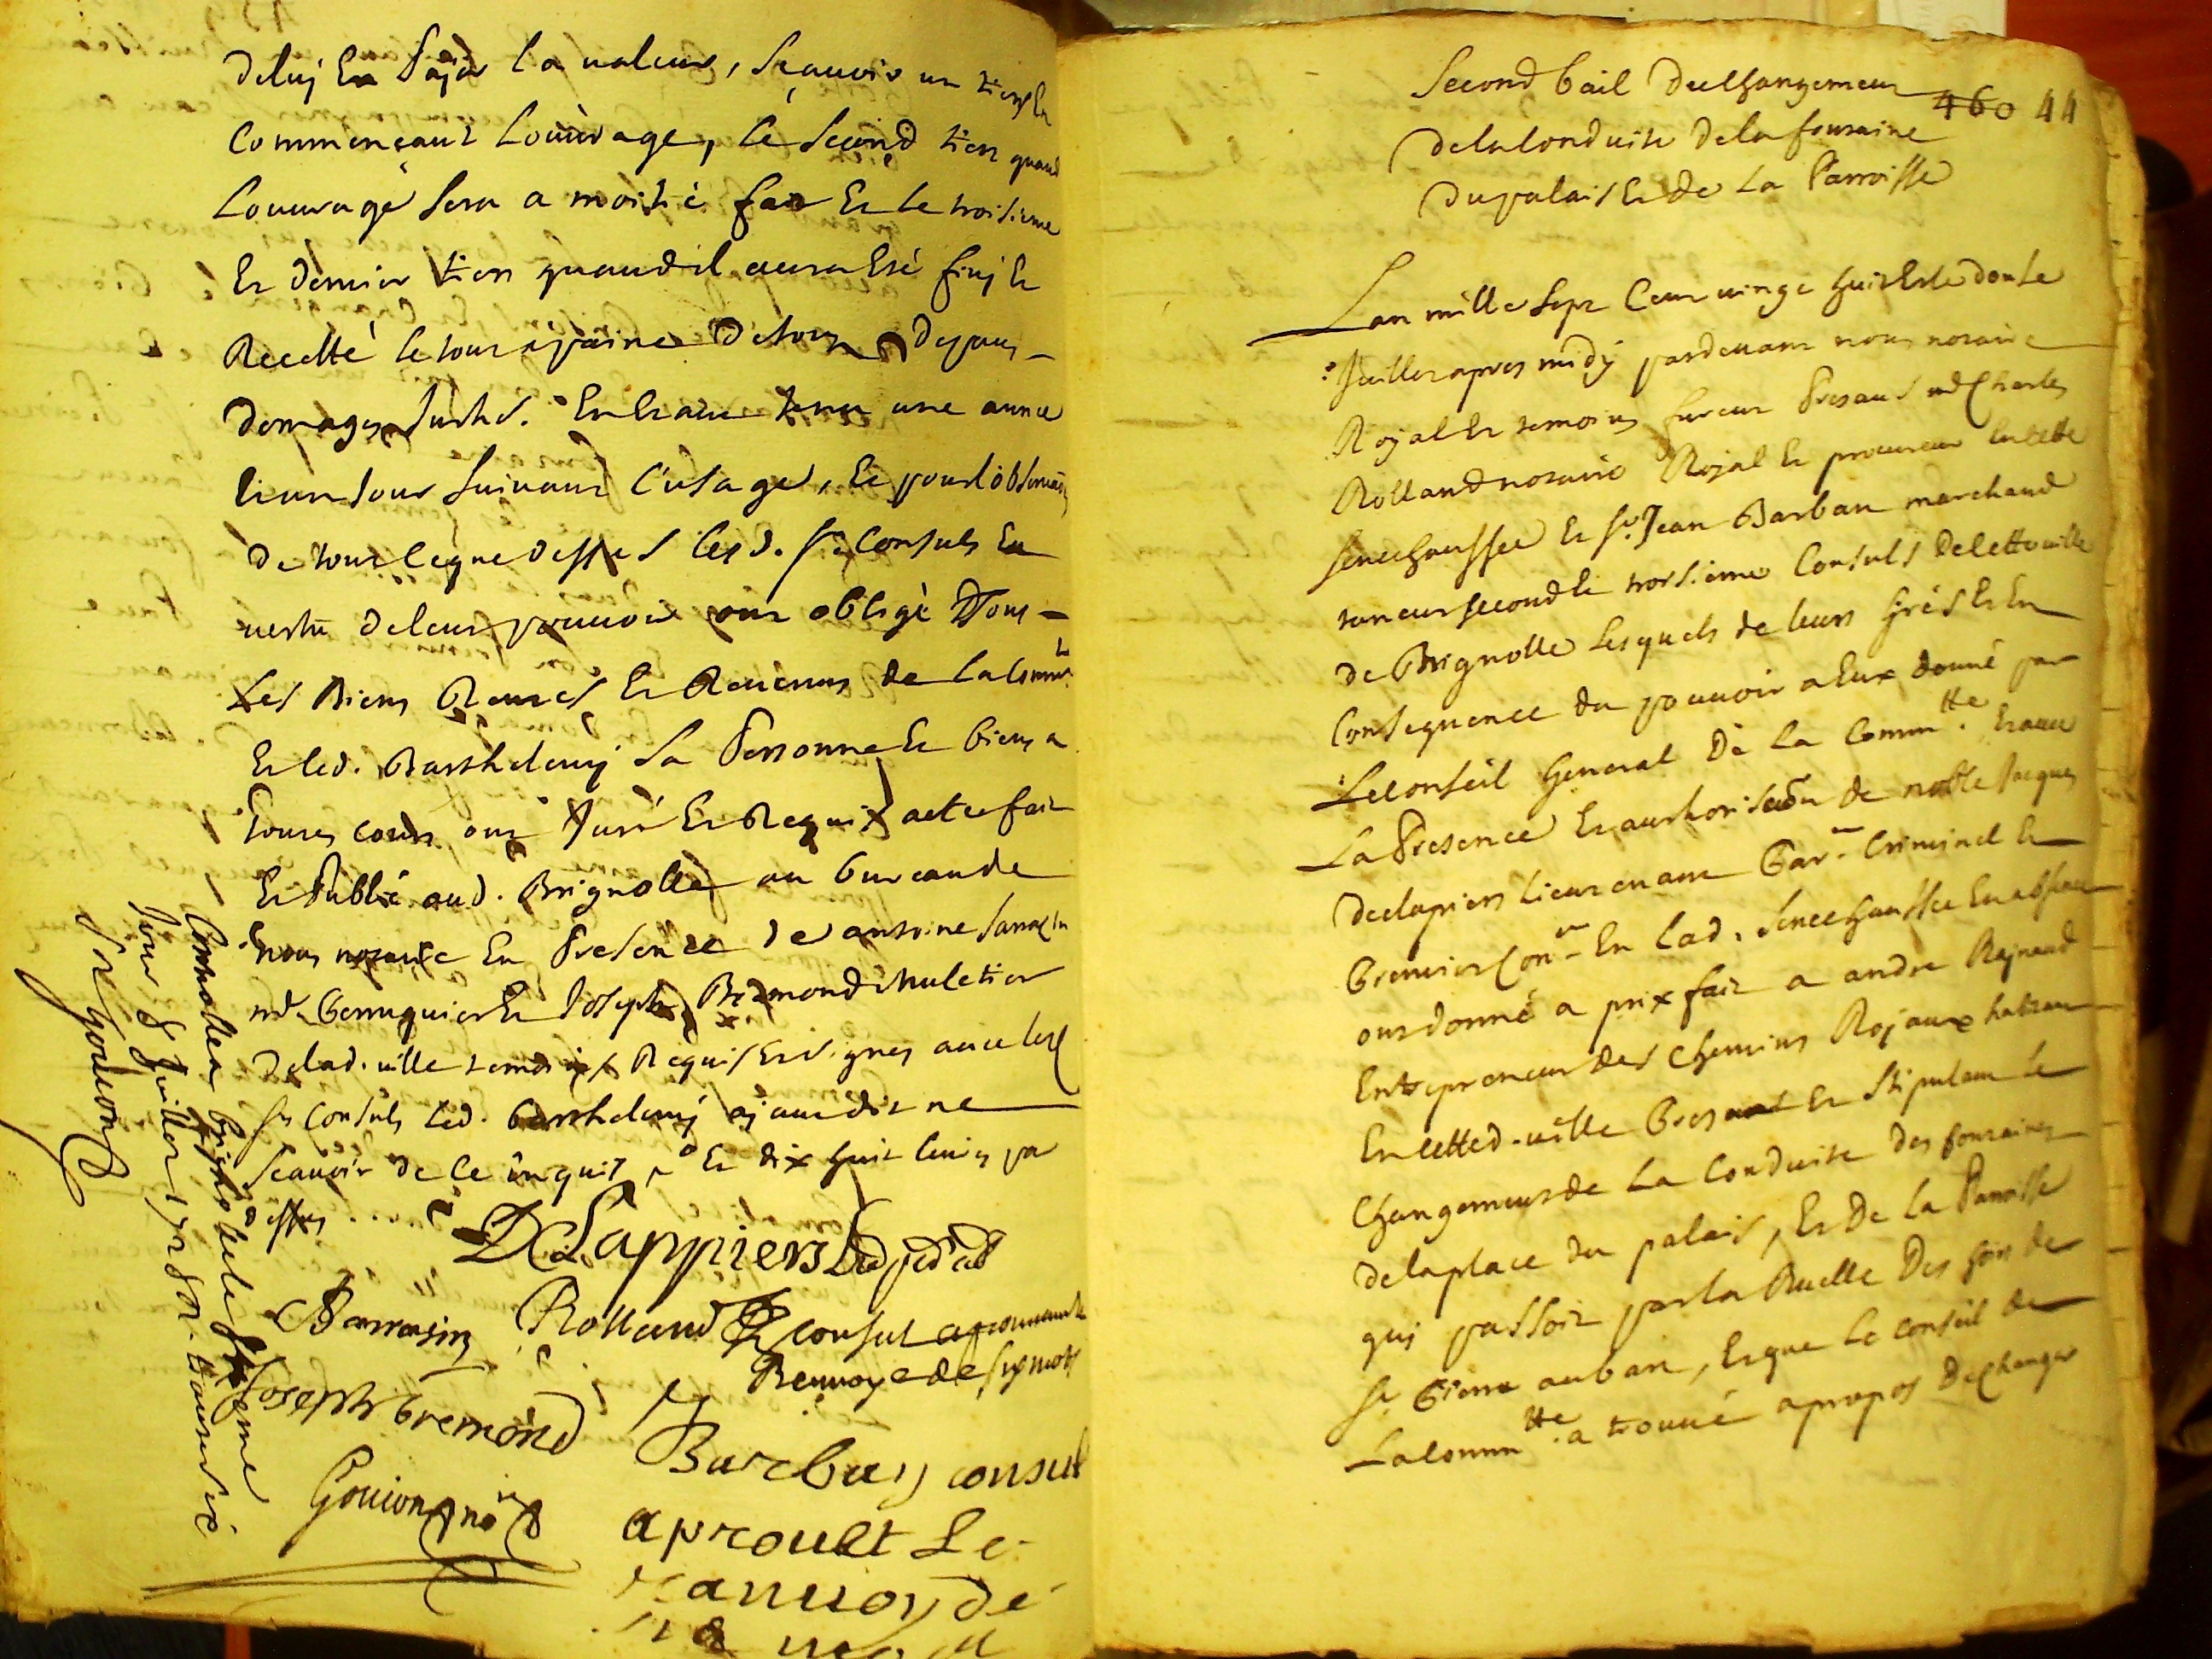 deluj En Pajer la valeur, Sçauoir un tiers En
Commençant Louuvrage, le Second tiers quand
Louuvrage Sera a moitié fait Et le troisieme
Et dernier tiers quand il aura Esté finj Et
Recetté le tout a paine de tous depans
domages
lieu suivant l'usage, Et pour l'observaon
de tout ce que dessus lesd. Srs Consuls En
vertu de leur pouuoir ont obligé Tous
Les Biens Rentes Et Reuenus de la Commté
Et led. Barthelemj Sa Personne Et biens a
toutes cours ont Juré Et Requis acte fait
Et Publié aud. Brignolle au bureau de
nous notaire En Presence de antoine Sarrazin
md. Perruquier Et Joseph Bremond Muletier
de lad. uille temoins Requis Et signés auec lesd
Srs Consuls Led. Barthelemj ajant dit ne
Scauoir de ce Enquis Et dix huit
dessus
DeLappiers
Sarrasin Rolland consul aprouuant le
Renuoy de six mots
Joseph bremond
Barbau consul
Gouion nore
aprouet Le
ranuoy de
Controllé a brignolle le
jour de Juillet 1728
Gouion
460 44
Second bail du Changement
de la Conduite de la fontaine
du palais Et de La Parroisse
Lan mille Sept Cent uingt huit Et le douze
Juillet apres midÿ pardeuant nous notaire
Rojal Et temoins furent Presans md Charles
Rolland notaire Rojal Et procureur En cette
Senechaussée Et Sr. Jean Barbau marchand
taneur second Et troisieme Consuls de cette uille
de Brignolle Lesquels de leurs Grés Et En
Consequence du pouuoir a Eux donné par
Le conseil General de la Commtté Et auec
La Presence Et authorisaon de noble Jacques
declapiers Lieutenant Parer Criminel Et
Premier Conr En Lad. Senechaussée En absence
ont donné a prix fait a andre Rejnaud
Entrepreneur des Chemins Rojaux habitant
En cetted. uille Present Et Stipulant Le
Changement de La Conduite des fontaines
de la place du palais, Et de la Parroisse
quj passoit par la Ruelle des hoirs de
Sr Pierre auban, Et que Le conseil de
La Commtté a trouué apropos de changer